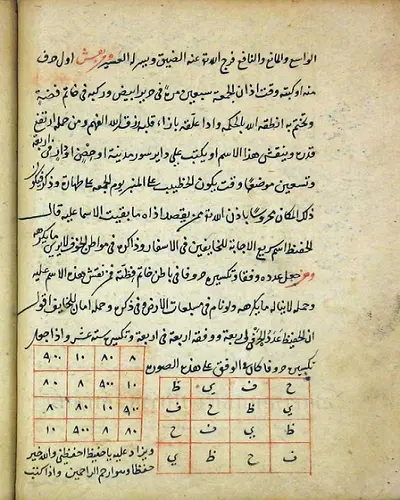 الواسع والمانع والنافع فرج الله عنه الضيق ويسر له العسير ومن نقش اول حرف
منه او كتبه وقت اذان الجمعة سبعين مرة في حرير ابيض وركبه في خاتم فضة
وتختم به انطقه الله بالحكمة واذا علقه بازاء قلبه رزقه الله الفهم ومن حمله ارتفع
قدره وينقش هذا الاسم او يكتب على داير سور مدينة او حصن او دار في اربعة
وتسعين موضعا وقت يكون الخطيب على المنبر يوم الجمعة على طهارة وذكر فيكون
ذلك المكان محروسا باذن الله ممن يقصد اذاه ما بقيت الاسما عليه قال
الحفيظ اسم سريع الاجابة للخايفين في الاسفار وذاكره في مواطن الخوف لا يرى ما يكره
ومن جعل عدده وفقا وتكسيره حروفا في باطن خاتم فضة ثم نقش هذه الاسم عليه
وحمله لا يناله ما يكرهه ولو نام في مسبعات الارض وفي ذكره وحمله امان للخايف اقول
ان الحفيظ عدد احرفه اربعة ووفقه اربعة في اربعة وتكسيره ستة عشر واذا جعل
تكسيره حروفا كان الوفق على هذه الصورة
٩٠٠ ١٠ ٨٠ ٨
٨٠ ٨ ٩٠٠ ١٠
٨ ٨٠ ١٠ ٩٠٠
١٠ ٩٠٠ ٨ ٨٠
ح ف ي ظ
ي ظ ح ف
ظ ي ف ح
ف ح ظ ي
ويزاد عليه يا حفيظ احفظني والله خير
حفظا وهو ارحم الراحمين واذا كتب